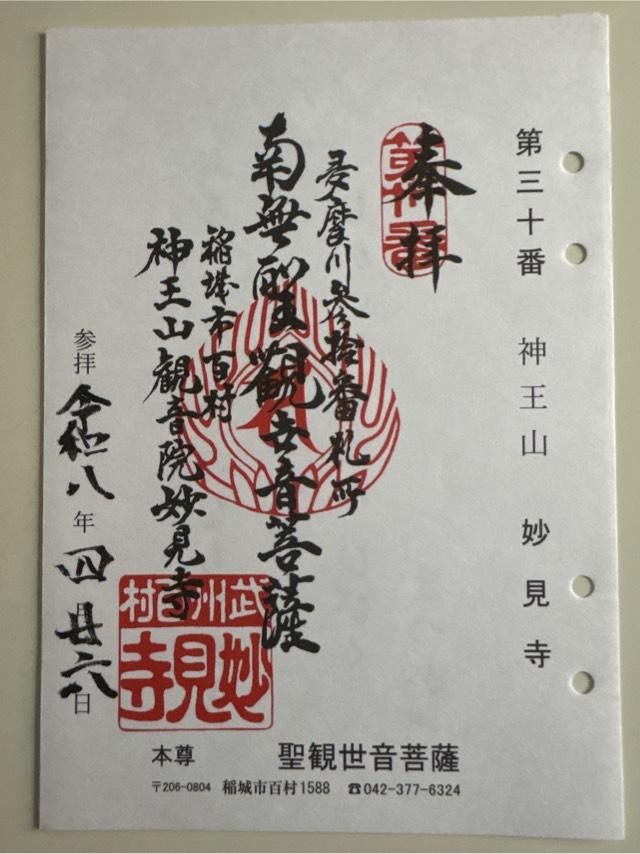 第三十番 神王山 妙見寺
奉拝
第卅番
多摩川参拾番札所
南無聖観世音菩薩
稲城市百村
神王山観音院妙見寺
参拝 令和八年四月廿六日
武州百村
妙見寺
本尊 聖観世音菩薩
〒206-0804 稲城市百村1588 ☎042-377-6324